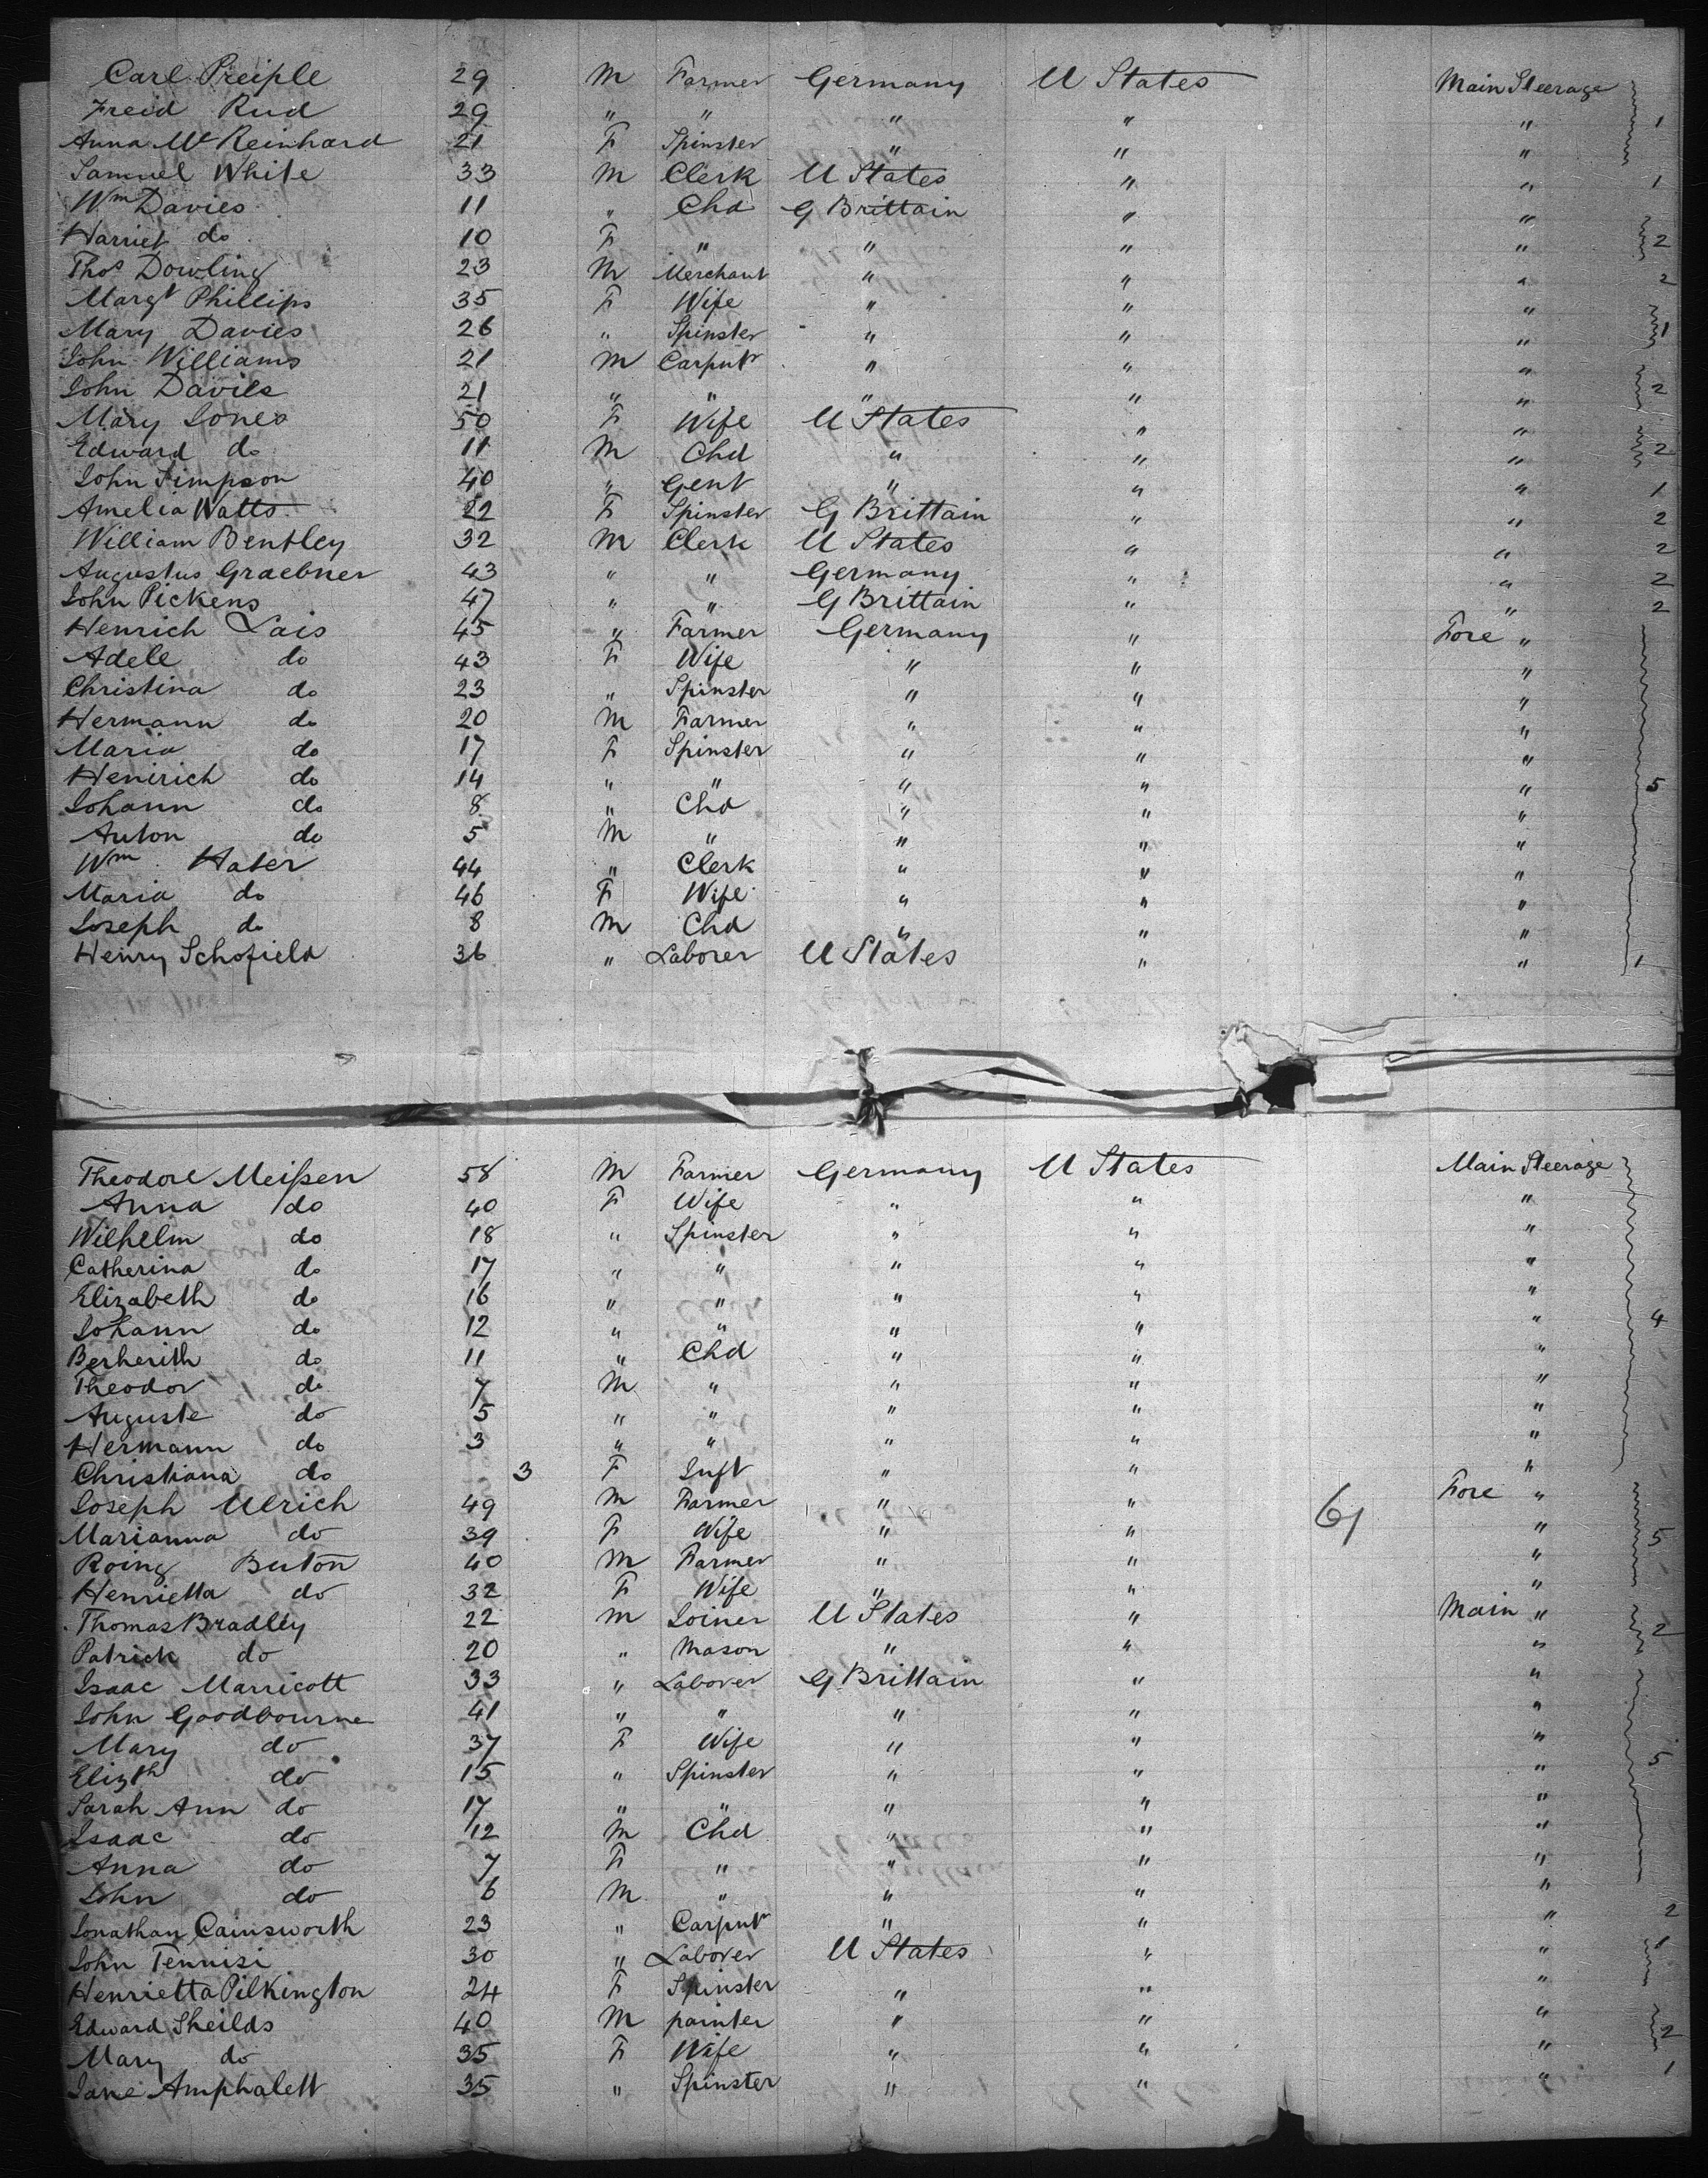 Carl Preiple 29 M Farmer Germany U States Main Steerage
Freid Rud 29 " " " " " 1
Anna Mt Reinhard 21 F Spinster " " "
Samuel White 33 M Clerk U States " " 1
Wm Davies 11 " Chd G Brittain " "
Harriet do 10 F " " " " 2
Thos Dowling 23 M Merchant " " " 2
Margt Phillips 35 F Wife " " "
Mary Davies 26 " Spinster " " " 1
John Williams 21 M Carpntr " " "
John Davies 21 " " " " " 2
Mary Jones 50 F Wife U States " "
Edward do 11 M Chd " " " 2
John Simpson 40 " Gent " " " 1
Amelia Watts 22 F Spinster G Brittain " " 2
William Bentley 32 M Clerk U States " " 2
Augustus Graebner 43 " " Germany " " 2
John Pickens 47 " " G Brittain " " 2
Henrich Lais 45 " Farmer Germany " Fore "
Adele do 43 F Wife " " "
Christina do 23 " Spinster " " "
Hermann do 20 M Farmer " " "
Maria do 17 F Spinster " " "
Henirich do 14 " " " " " 5
Johann do 8 " Chd " " "
Anton do 5 M " " " "
Wm Hater 44 " Clerk " " "
Maria do 46 F Wife " " "
Joseph do 8 M Chd " " "
Henry Schofield 36 " Laborer U States " " 1
Theodore Meißen 58 M Farmer Germany U States Main Steerage
Anna do 40 F Wife " " "
Wilhelm do 18 " Spinster " " "
Catherina do 17 " " " " "
Elizabeth do 16 " " " " "
Johann do 12 " " " " " 4
Berherith do 11 " Chd " " "
Theodor do 7 M " " " "
Auguste do 5 " " " " "
Hermann do 3 " " " " "
Christiana do 3 F Inft " " "
Joseph Ulrich 49 M Farmer " " 61 Fore "
Marianna do 39 F Wife " " " 5
Roing Buton 40 M Farmer " " "
Henrietta do 32 F Wife " " "
Thomas Bradley 22 M Joiner U States " Main " 2
Patrick do 20 " Mason " " "
Isaac Marricott 33 " Laborer G Brittain " "
John Goodbourne 41 " " " " "
Mary do 37 F Wife " " "
Elizth do 15 " Spinster " " " 5
Sarah Ann do 17 " " " " "
Isaac do 12 M Chd " " "
Anna do 7 F " " " "
John do 6 M " " " "
Jonathan Cainsworth 23 " Carpntr " " " 2
John Tennisi 30 " Laborer U States " " 1
Henrietta Pilkington 24 F Spinster " " "
Edward Sheilds 40 M painter " " " 2
Mary do 35 F Wife " " "
Jane Amphalett 35 " Spinster " " " 1